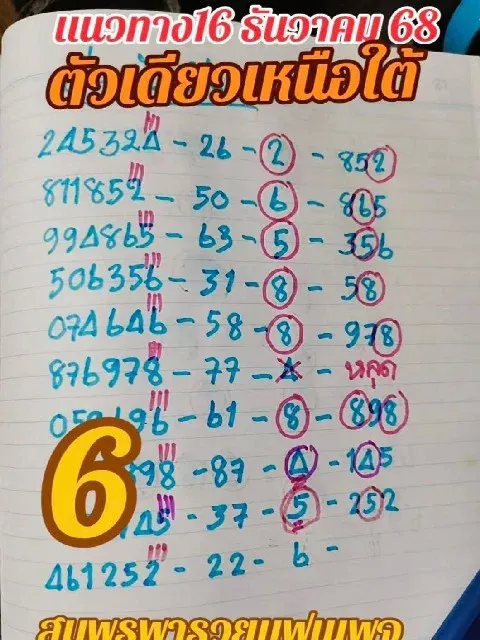 แนวทาง16 ธันวาคม 68
ตัวเดียวเหนือใต้
245324 - 26 - 2 - 852
811852 - 50 - 6 - 865
994865 - 63 - 5 - 356
506356 - 31 - 8 - 58
074646 - 58 - 8 - 978
876978 - 77 - 4 - หลุด
696 - 61 - 8 - 898
898 - 87 - 4 - 145
45 - 37 - 5 - 252
6
461252 - 22 - 6 -